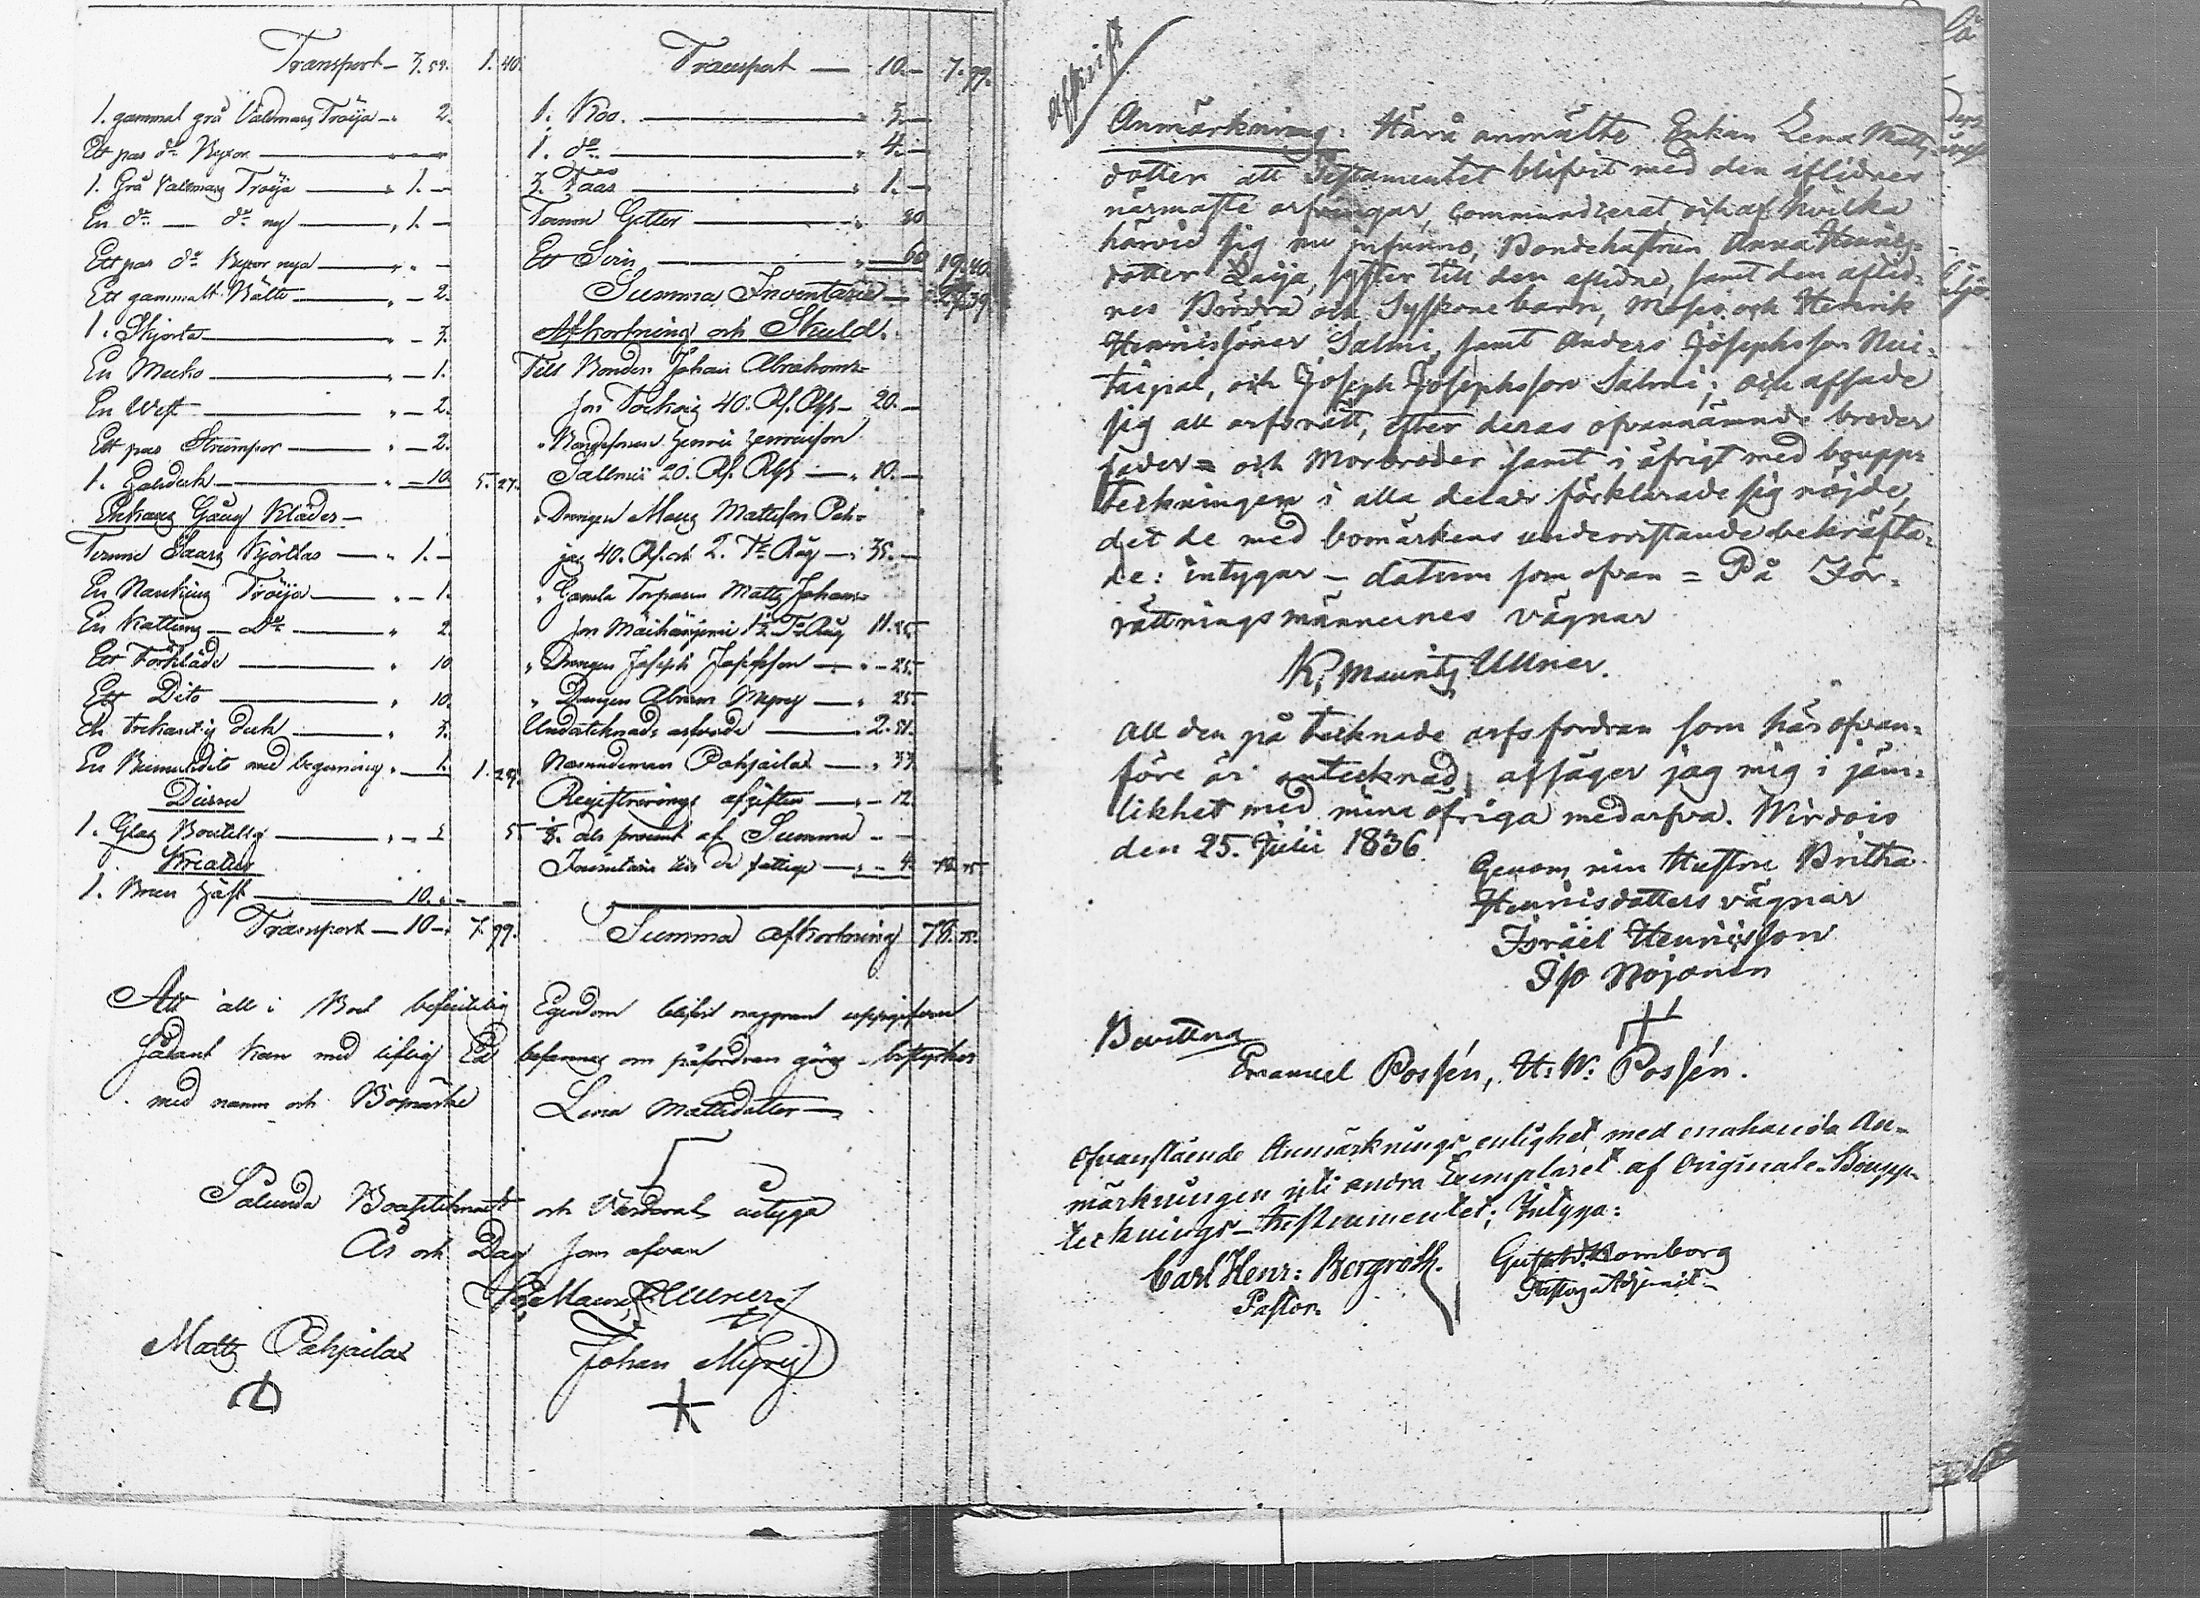 Transport — 3. 59. 1. 40.
1. gammal grå Valdmans Tröija — 2.
Ett par do Byxor —
1. Grå Valdmans Tröija — 1. —
En do — do ny — 1. —
Ett par do Byxor nya — -
Ett gammalt Bälte — 2.
1. Skjorta — 3.
En Mecko — 1.
En West — 2.
Ett par Strumpor — 2.
1. Halsduk — 10. 5. 27.
Enkans Gång Kläder —
Tvenne Kjortlar — 1. —
En Nankins Tröija — 1.
En Kattuns — Do — 2.
Ett Förkläde — 10
Ett Dito — 10.
En trekantig duk — 3.
En med — 1. 1. 29.
Diverse
1. Glas Boutelly — 5 5
Kreatur
1. Brun Häst — 10. -
Transport — 10 — 7. 99.
Transport — 10. — 7. 99.
1. Koo. — 5. —
1. do — 4. —
3. Fåår — 1. —
Tvenne Getter — 80
Ett Svin — 60 19. 40.
Summa Inventarie — 39.
Afkortning och Skuld.
Till Bonden Johan Abrahams-
son 40. Rf. Rgs — 20. —
" Bondesonen Henric Henricsson
Sallmi 20. Rf. Rgs — 10. —
" Drengen Mats Mattsson Pah-
40. Rf. och 2. Tr Råg — 35. —
" Gamla Torparen Matts Johans-
son Tr Råg 11. 25.
" Drengen Joseph Josephsson — 25.
" Drengen Abram Myrej — 25.
Undertecknads arfvode — 2. 51.
Nämndeman Pohjailas — 33.
Registrerings afgiften — 12.
1/8. dels procent af Summa - -
Inventarie till de fattige — 4. 78. 75
Summa afkortning 78. 75.
Att allt i Boet befintelig Egendom blifvit noggrant uppgifven
sådant kan med liflig Ed befannas om påfordran görs — bestyrker
med namn och Bomärke Lena Mattsdotter —
Sålunda Bouptecknadt och Värderat intyga
År och Dag som ofvan
K. Maurits Ullner
Matts Pohjailas Johan Myrej
Afskrift
Anmärkning: Härå anmälte Enkan Lena Matts-
dotter att Testamentet blifvit med den aflidnes
närmaste arfvingar, communicerat, och af hvilka
härvid sig nu infunno, Bondehustrun Anna Henrics-
dotter Zaija, syster till den aflidne, samt den aflid-
nes Brödra och Syskonebarn, Moses och Henrik
Henricssöner Salmi, samt Anders Josephsson Nui-
taipal, och Joseph Josephsson Salmi; och afsade
sig all arfsrätt, efter deras ofvannämnde broder
fader = och Morbroder samt i öfrigt med boupp-
teckningen i alla delar förklarade sig nöjde,
det de med bomärkens understående bekräfta-
de: intygar — datum som ofvan = På För-
rättningsmännernes vägnar
K. Maurits Ullner.
All den på tecknade arfsfordran som här ofvan-
före är antecknad, afsäger jag mig i jäm-
likhet med mina öfriga medarfva. Wirdois
den 25. Julii 1836.
Genom min Hustru Britha
Henricsdotters vägnar
Israel Henricsson
Iso Mojanen
Bevittna
Emanuel Possén, H: W: Possén.
Ofvanstående Anmärknings enlighet med enahanda An-
märkningen uti andra Exemplaret af Originale Boupp-
tecknings-Instrumentet; Intyga:
Carl Henr: Bergroth. Gustaf Homborg
Pastor. Pastors Adjunct —